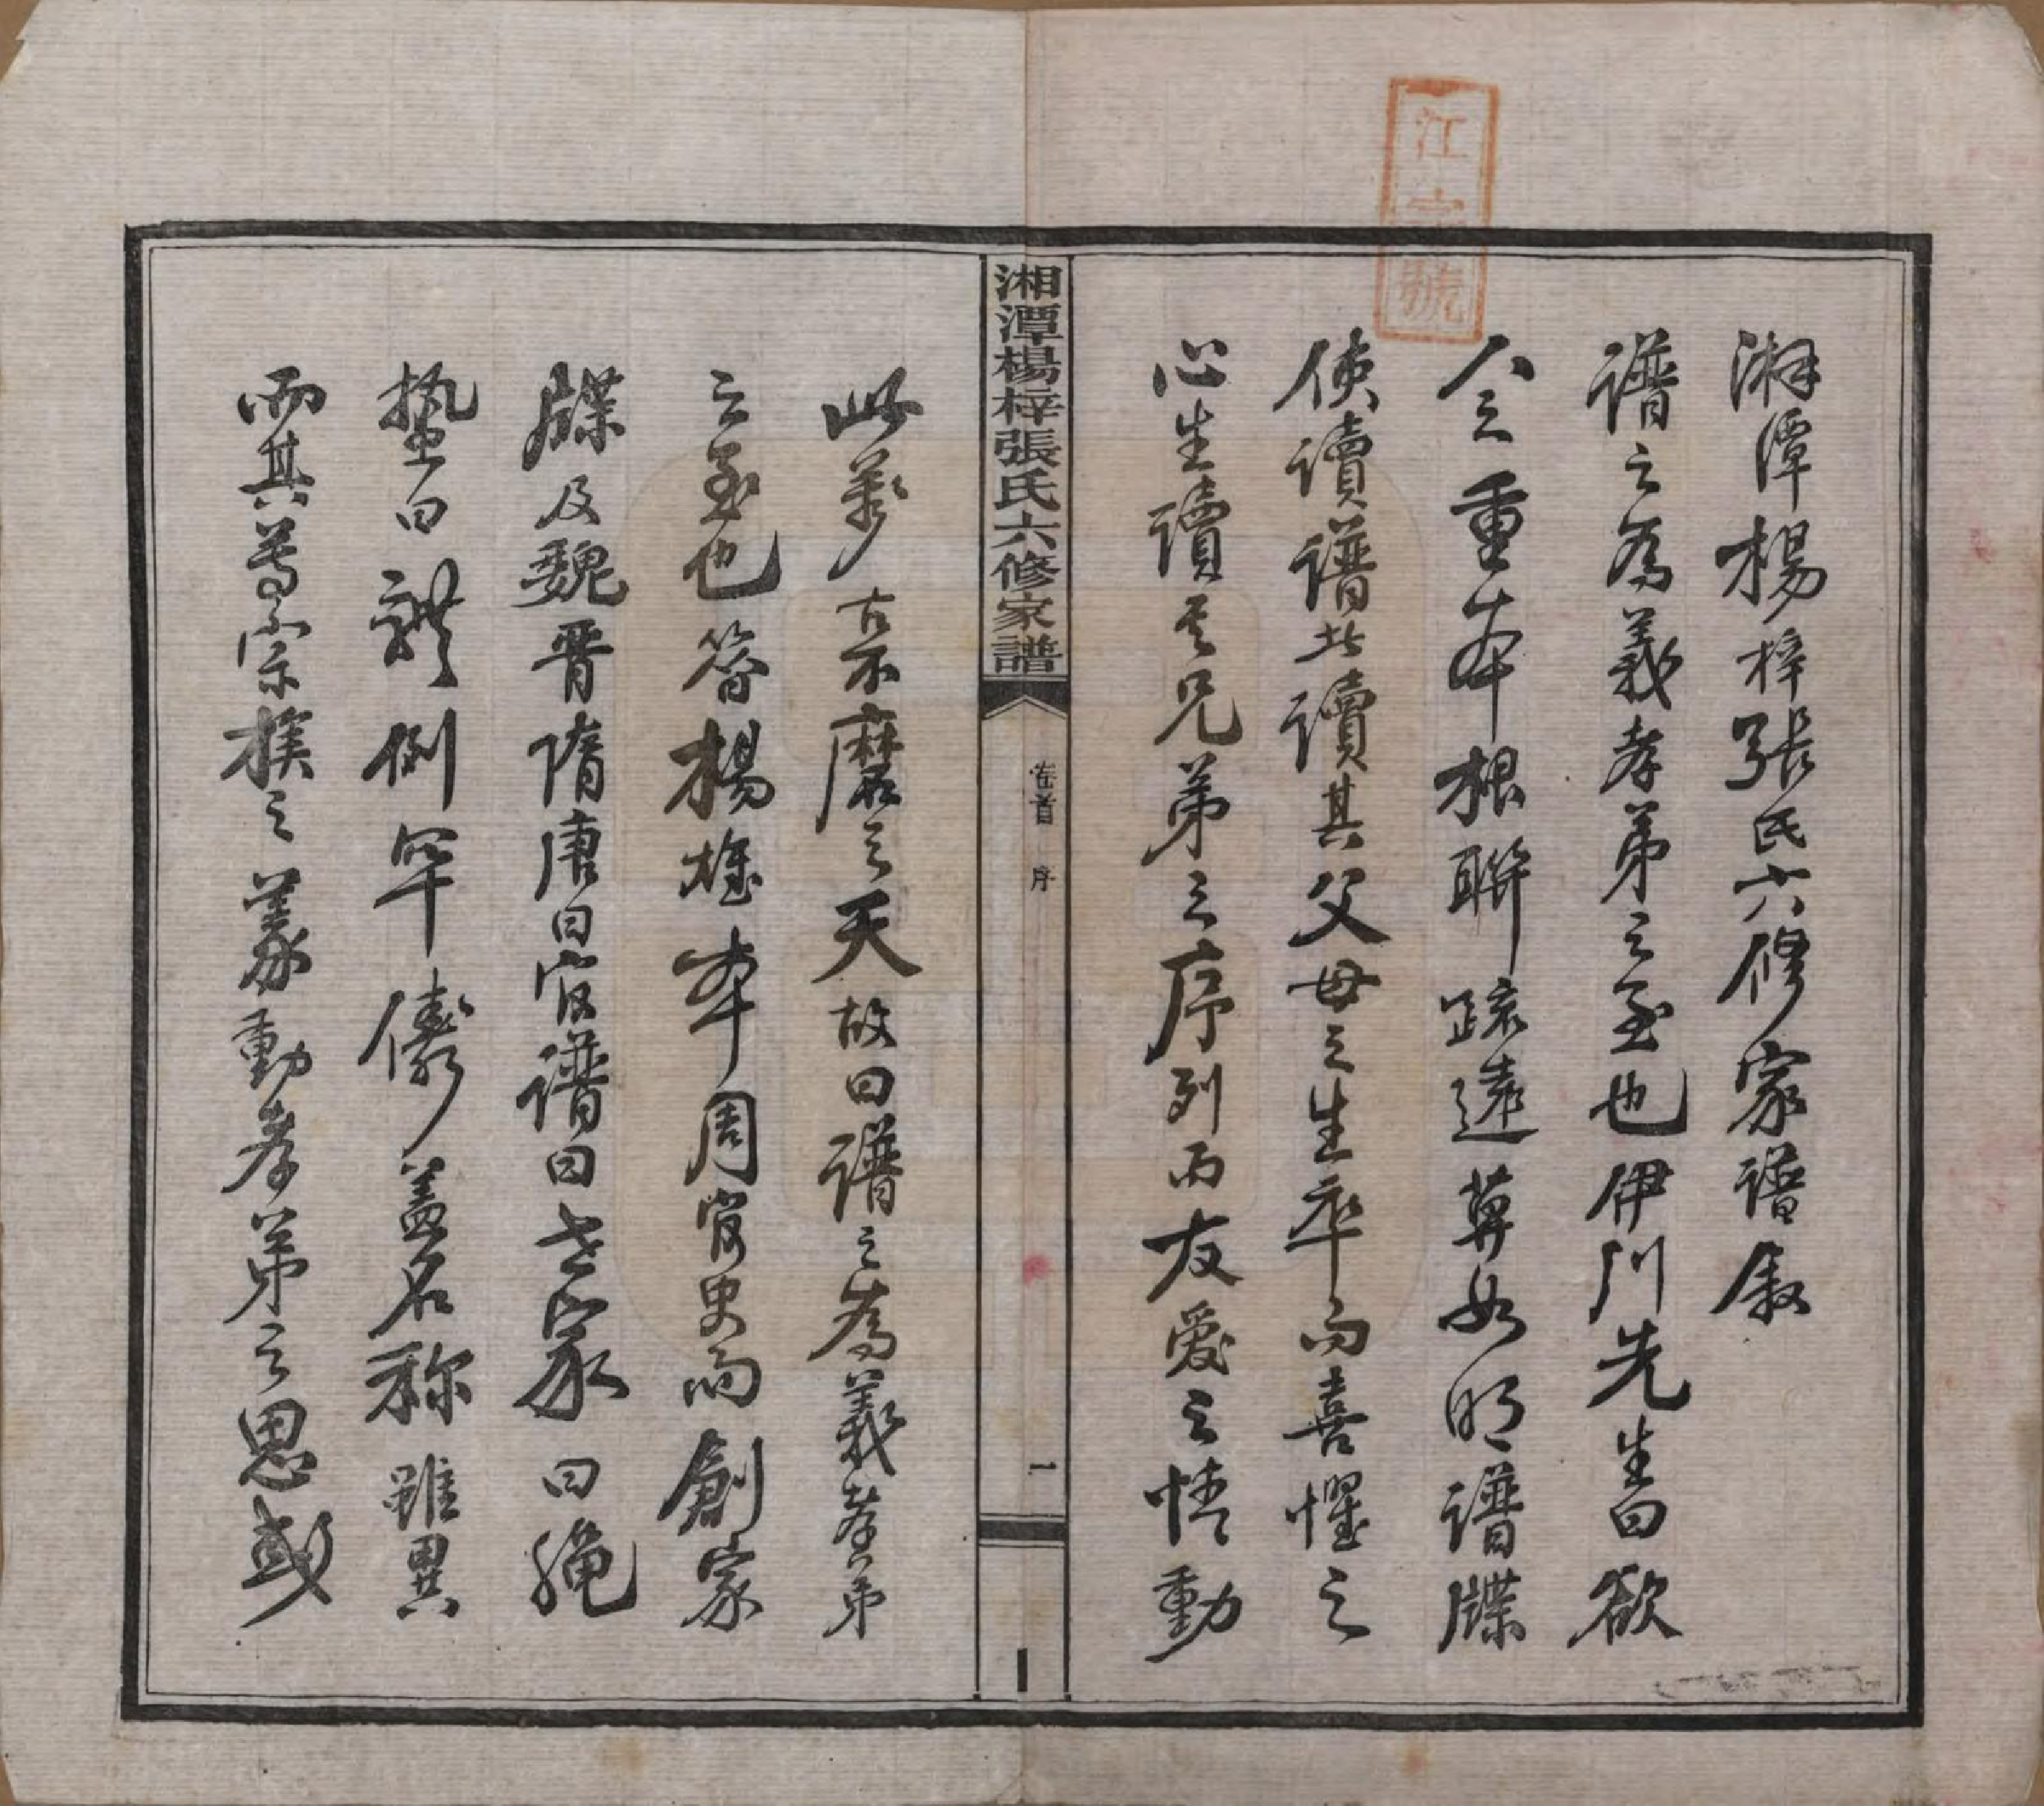 江字號
湘潭楊梓張氏六修家譜敘
譜之為義孝弟之至也伊川先生曰欲
人重本根聯疏遠莫如明譜牒
使讀譜者讀其父母之生卒而喜懼之
心生讀其兄弟之序列而友愛之情動
湘潭楊梓張氏六修家譜
卷首 序
一
此萬古不磨之天故曰譜之為義孝弟
之至也昔楊雄本周官史而創家
牒及魏晉隋唐曰官譜曰世家曰繩
蟄曰體例罕儔蓋名稱雖異
而其尊宗族之義動孝弟之思或